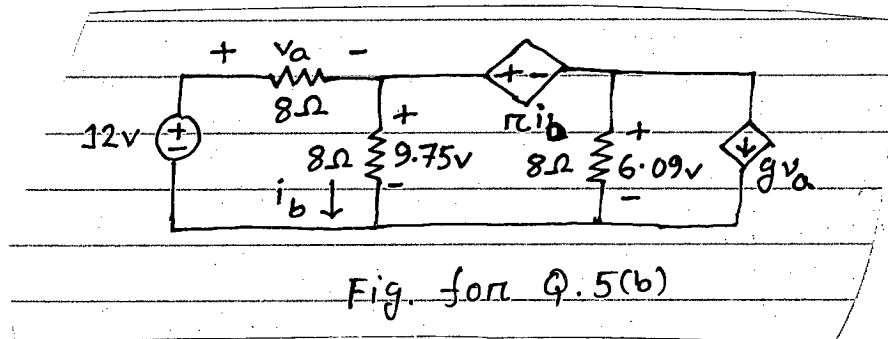 + va -
8Ω
+ -
rib
12v
+
-
8Ω
+
9.75v
-
ib ↓
8Ω
+
6.09v
-
↓ gva
Fig. for Q.5(b)